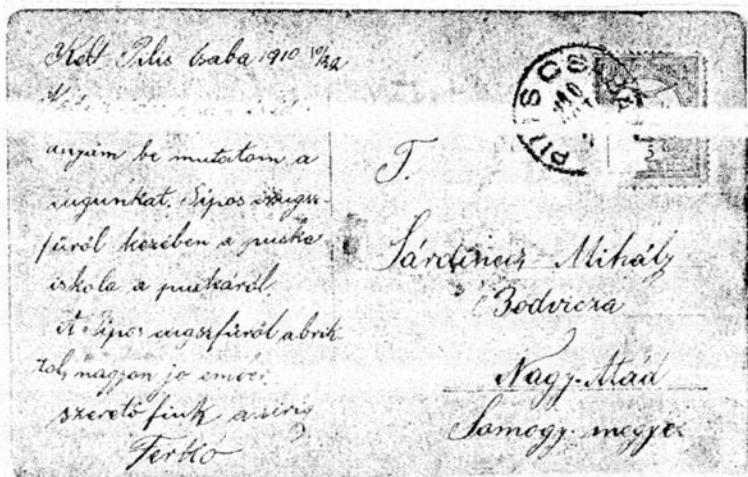 Kelt Pilis Csaba 1910 10/22
anyám be mutatom a
zugunkat. Sipos zugsz-
fűről kezében a puska
iskola a puskáról.
A Sipos zugszfűről abrik
tol, nagyon jo ember.
szerető fiuk a sirig
Ferkó
PILISCSABA
910
5
T.
Sárdinecz Mihály
Bodvicza
Nagy-Atád
Somogy-megye